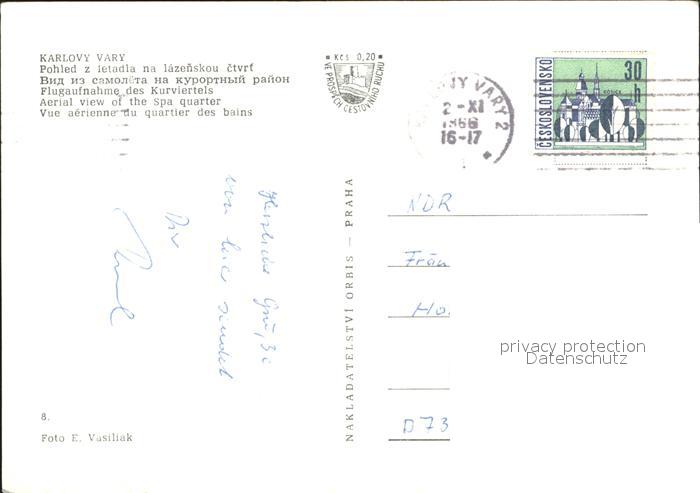 KARLOVY VARY
Pohled z letadla na lázeňskou čtvrť
Вид из самолёта на курортный район
Flugaufnahme des Kurviertels
Aerial view of the Spa quarter
Vue aérienne du quartier des bains
Kčs 0,20
VE PROSPĚCH CESTOVNÍHO RUCHU
VY VARY 2
2-XI
1966
16-17
ČESKOSLOVENSKO
30
h
KOŠICE
Herzliche Grüße
von hier sendet
Dir
NAKLADATELSTVÍ ORBIS — PRAHA
NDR
Frau
Ho.
privacy protection
Datenschutz
D 73
8.
Foto E. Vasiliak